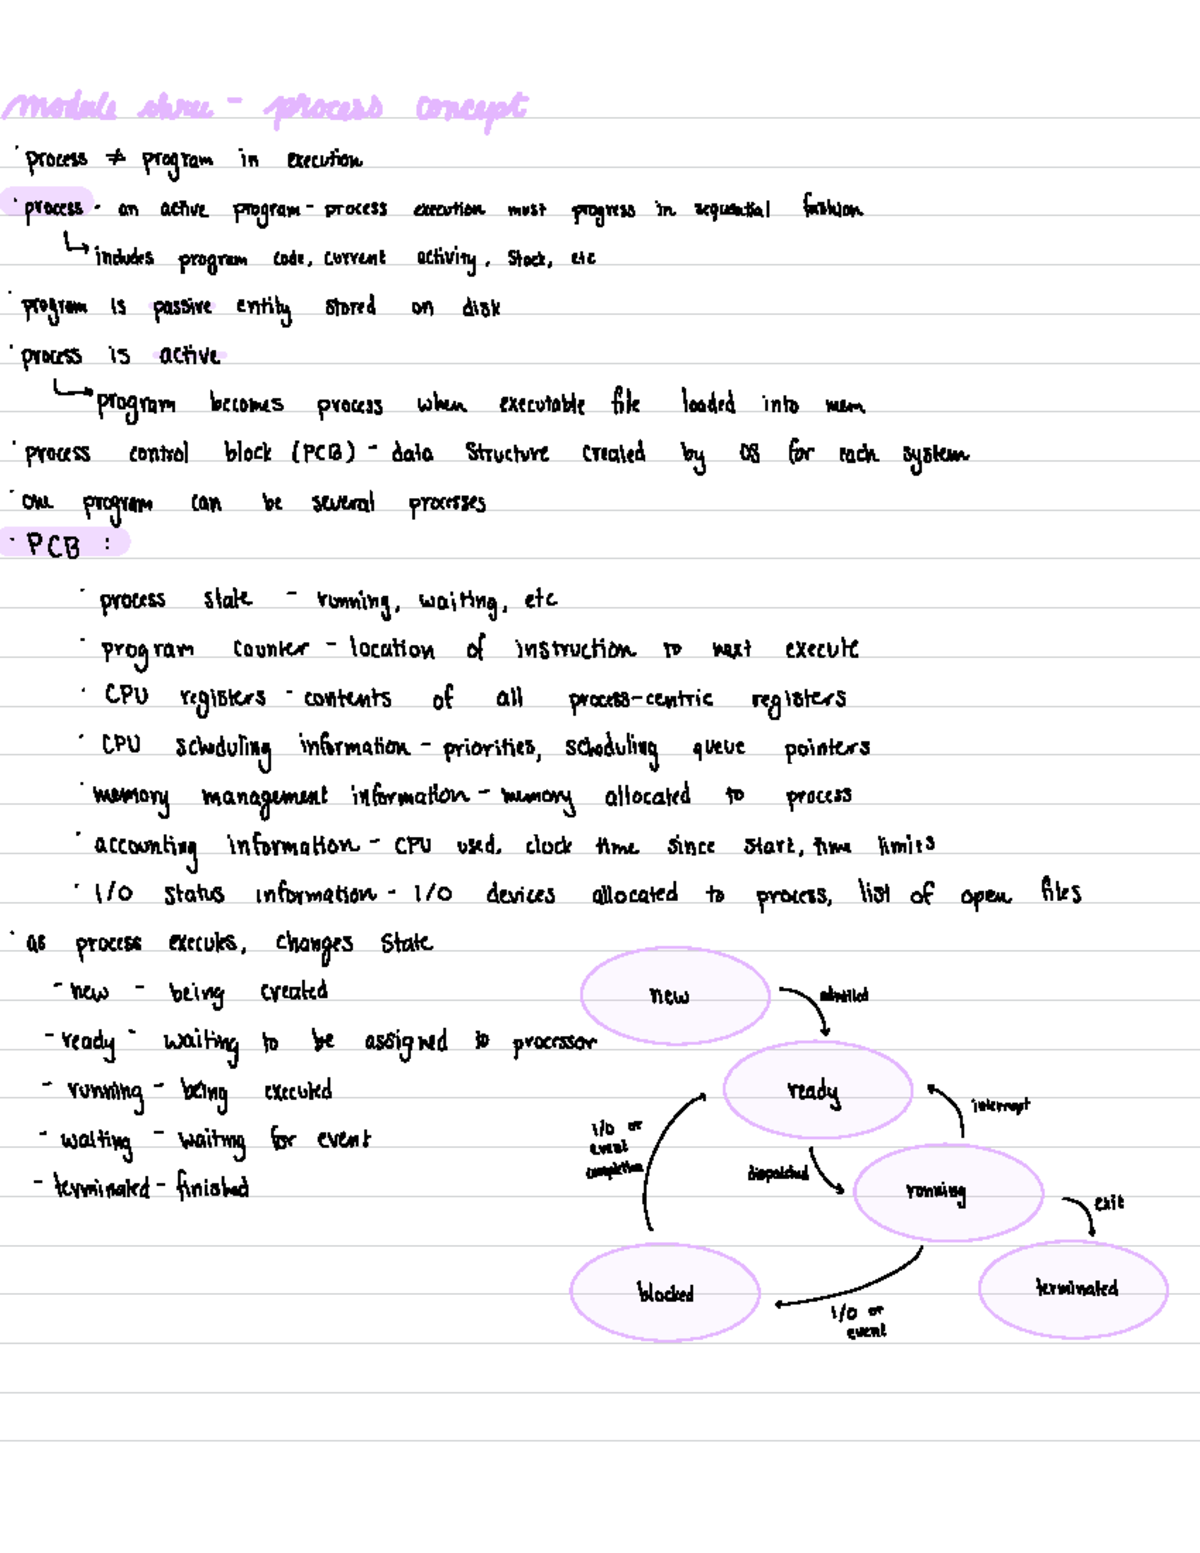 module three - process concept
· process ≠ program in execution
· process - an active program - process execution must progress in sequential fashion
↳ includes program code, current activity, stack, etc
· program is passive entity stored on disk
· process is active
↳ program becomes process when executable file loaded into mem
· process control block (PCB) - data structure created by OS for each system
· one program can be several processes
· PCB :
· process state - running, waiting, etc
· program counter - location of instruction to next execute
· CPU registers - contents of all process-centric registers
· CPU scheduling information - priorities, scheduling queue pointers
· memory management information - memory allocated to process
· accounting information - CPU used, clock time since start, time limits
· I/O status information - I/O devices allocated to process, list of open files
· as process executes, changes state
- new - being created
- ready - waiting to be assigned to processor
- running - being executed
- waiting - waiting for event
- terminated - finished
new
admitted
ready
interrupt
I/O or
event
completion
dispatched
running
exit
blocked
terminated
I/O or
event